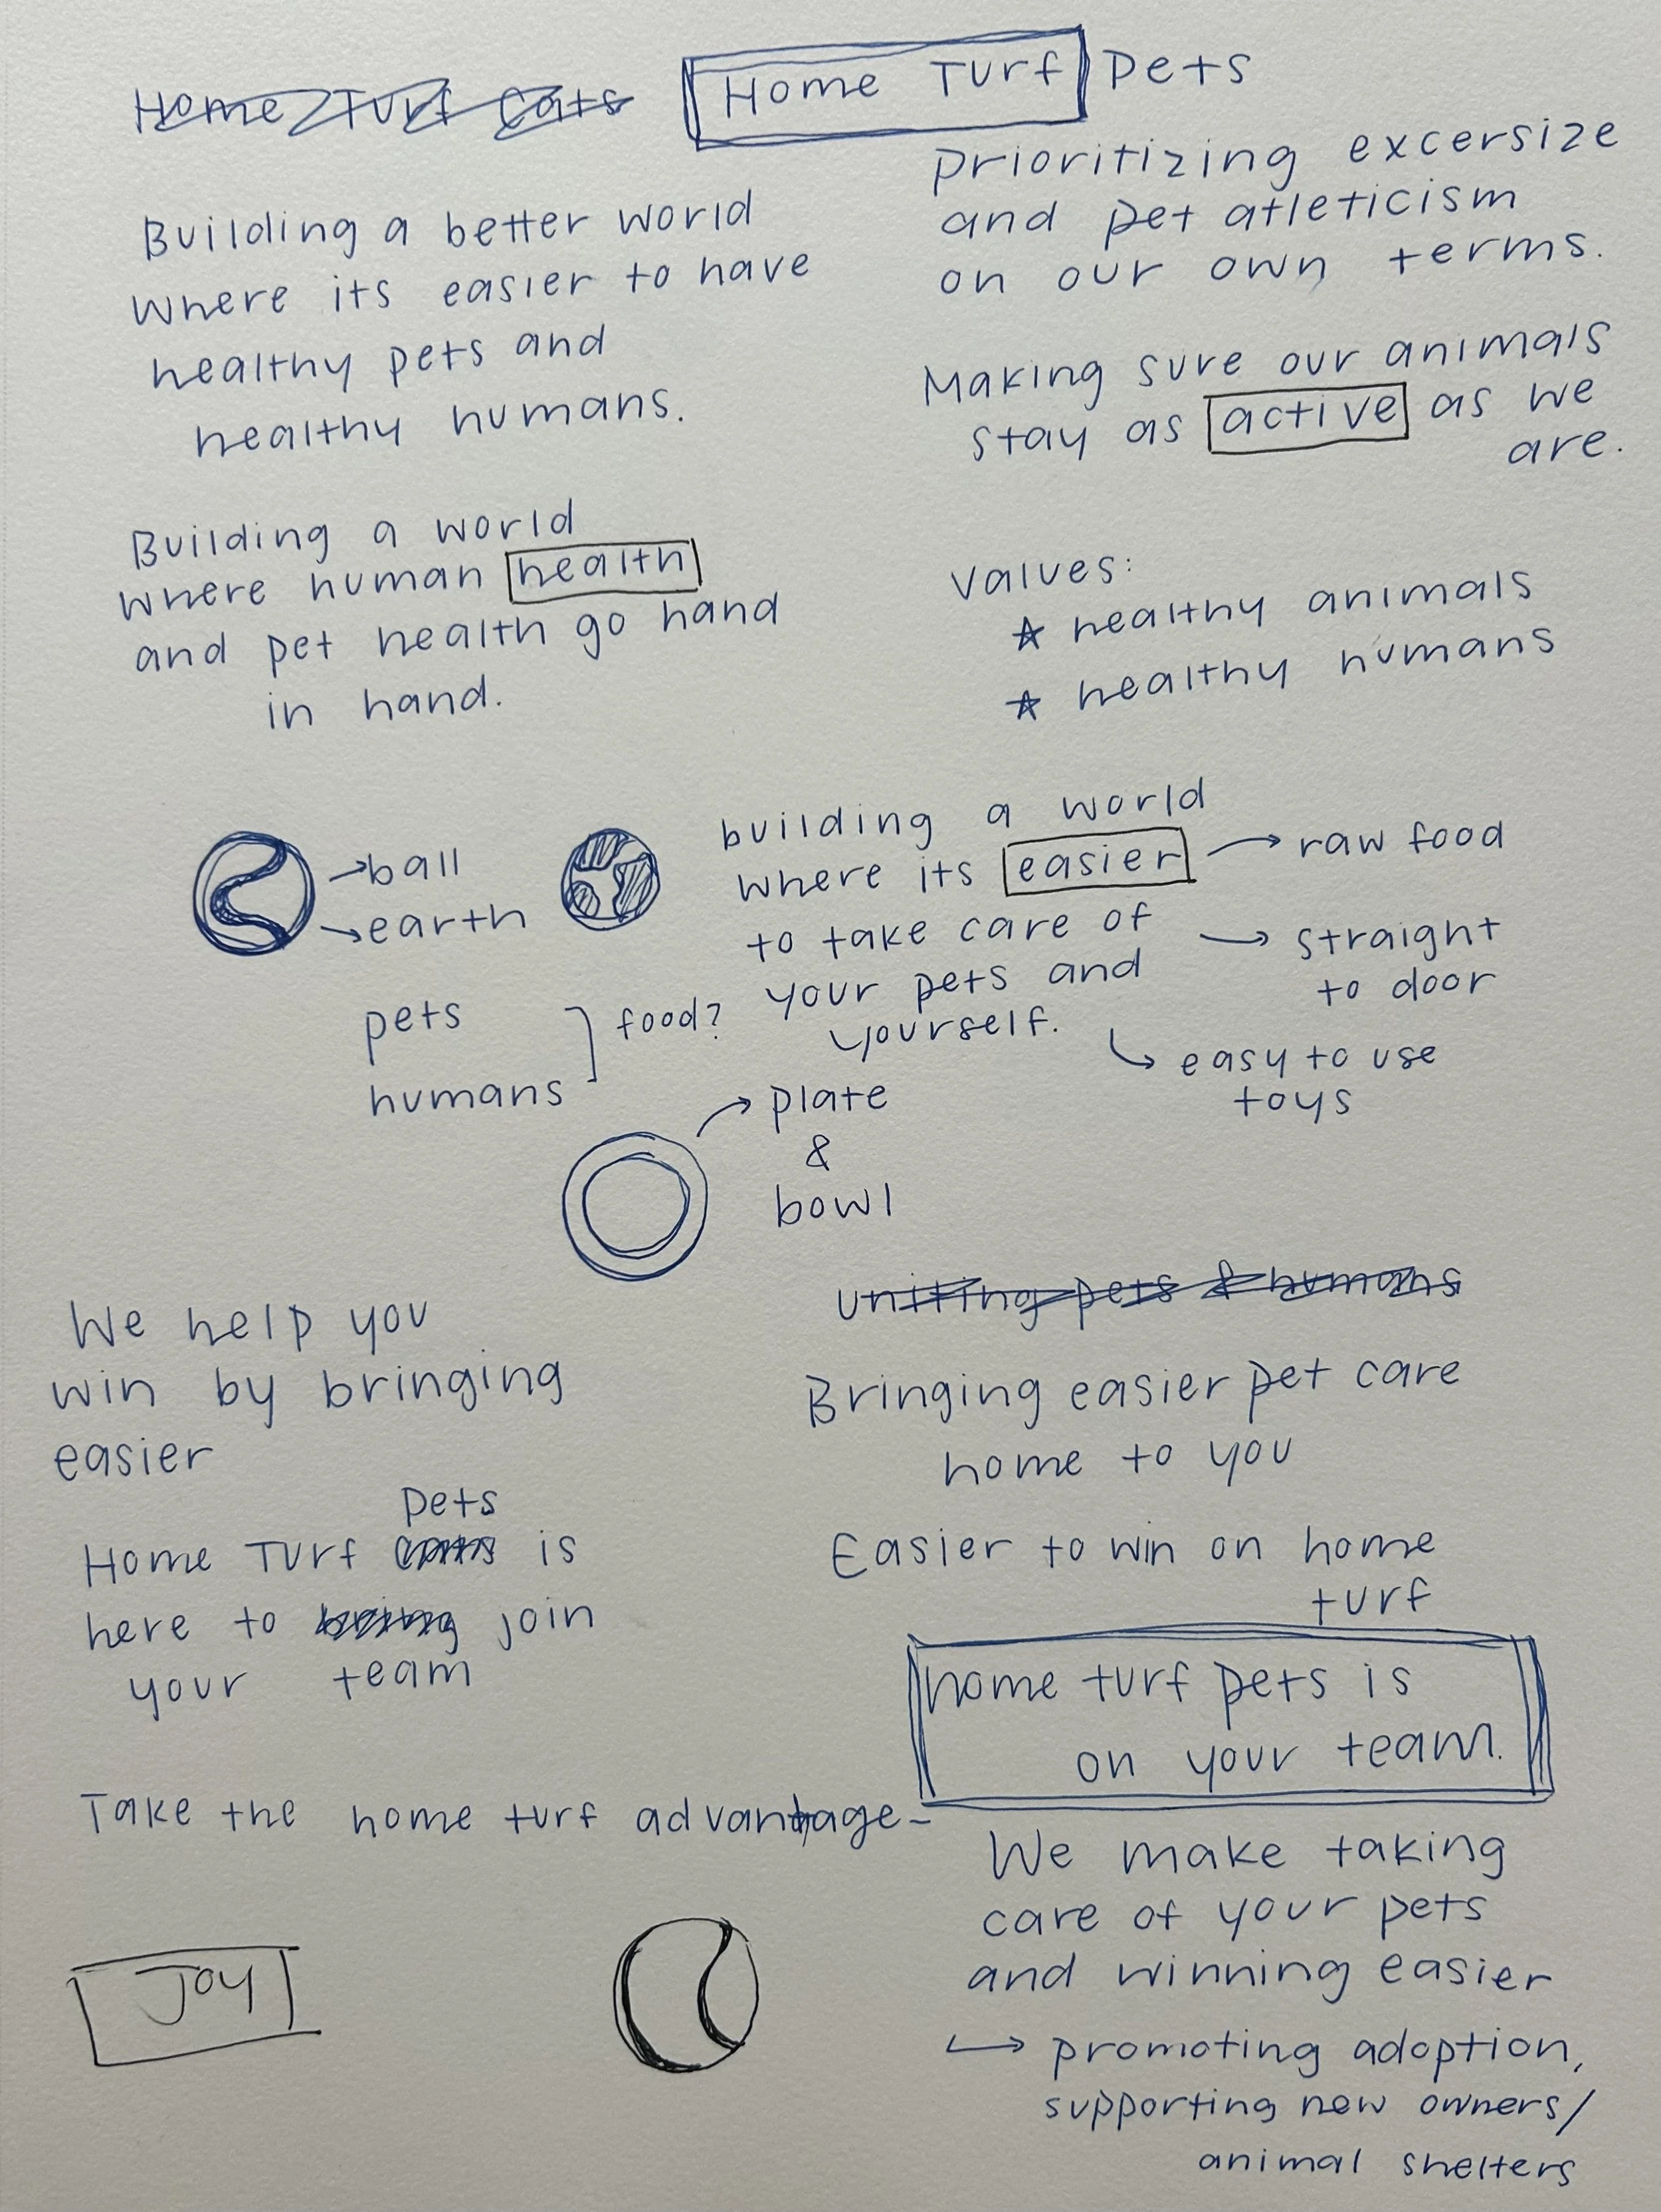 Home Turf Cats
Home Turf Pets
Building a better world
where its easier to have
healthy pets and
healthy humans.
prioritizing excersize
and pet atleticism
on our own terms.
Making sure our animals
stay as active as we
are.
Building a world
where human health
and pet health go hand
in hand.
values:
healthy animals
healthy humans
ball
earth
building a world
where its easier
to take care of
your pets and
yourself.
raw food
straight
to door
easy to use
toys
pets
humans
food?
plate
&
bowl
uniting pets & humans
We help you
win by bringing
easier
Bringing easier pet care
home to you
pets
Home Turf cats is
here to bring join
your team
Easier to win on home
turf
home turf pets is
on your team.
Take the home turf advantage-
We make taking
care of your pets
and winning easier
promoting adoption,
supporting new owners/
animal shelters
Joy